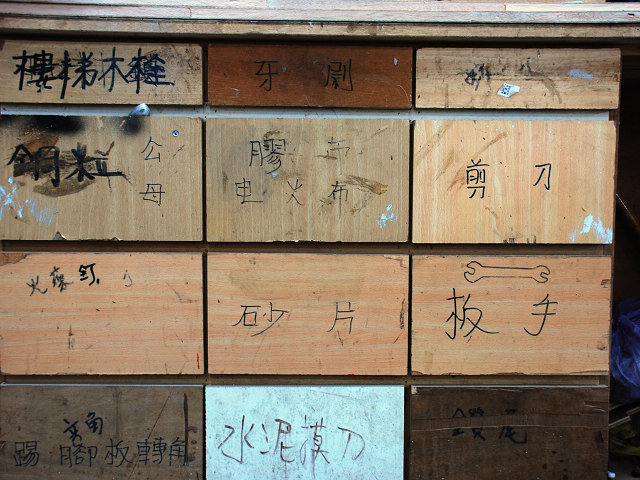 樓梯木栓
牙刷
鋼粒 公
母
膠布
电火布
剪刀
火藥釘
砂片
板手
實角
踢腳板轉角
水泥摸刀
尾